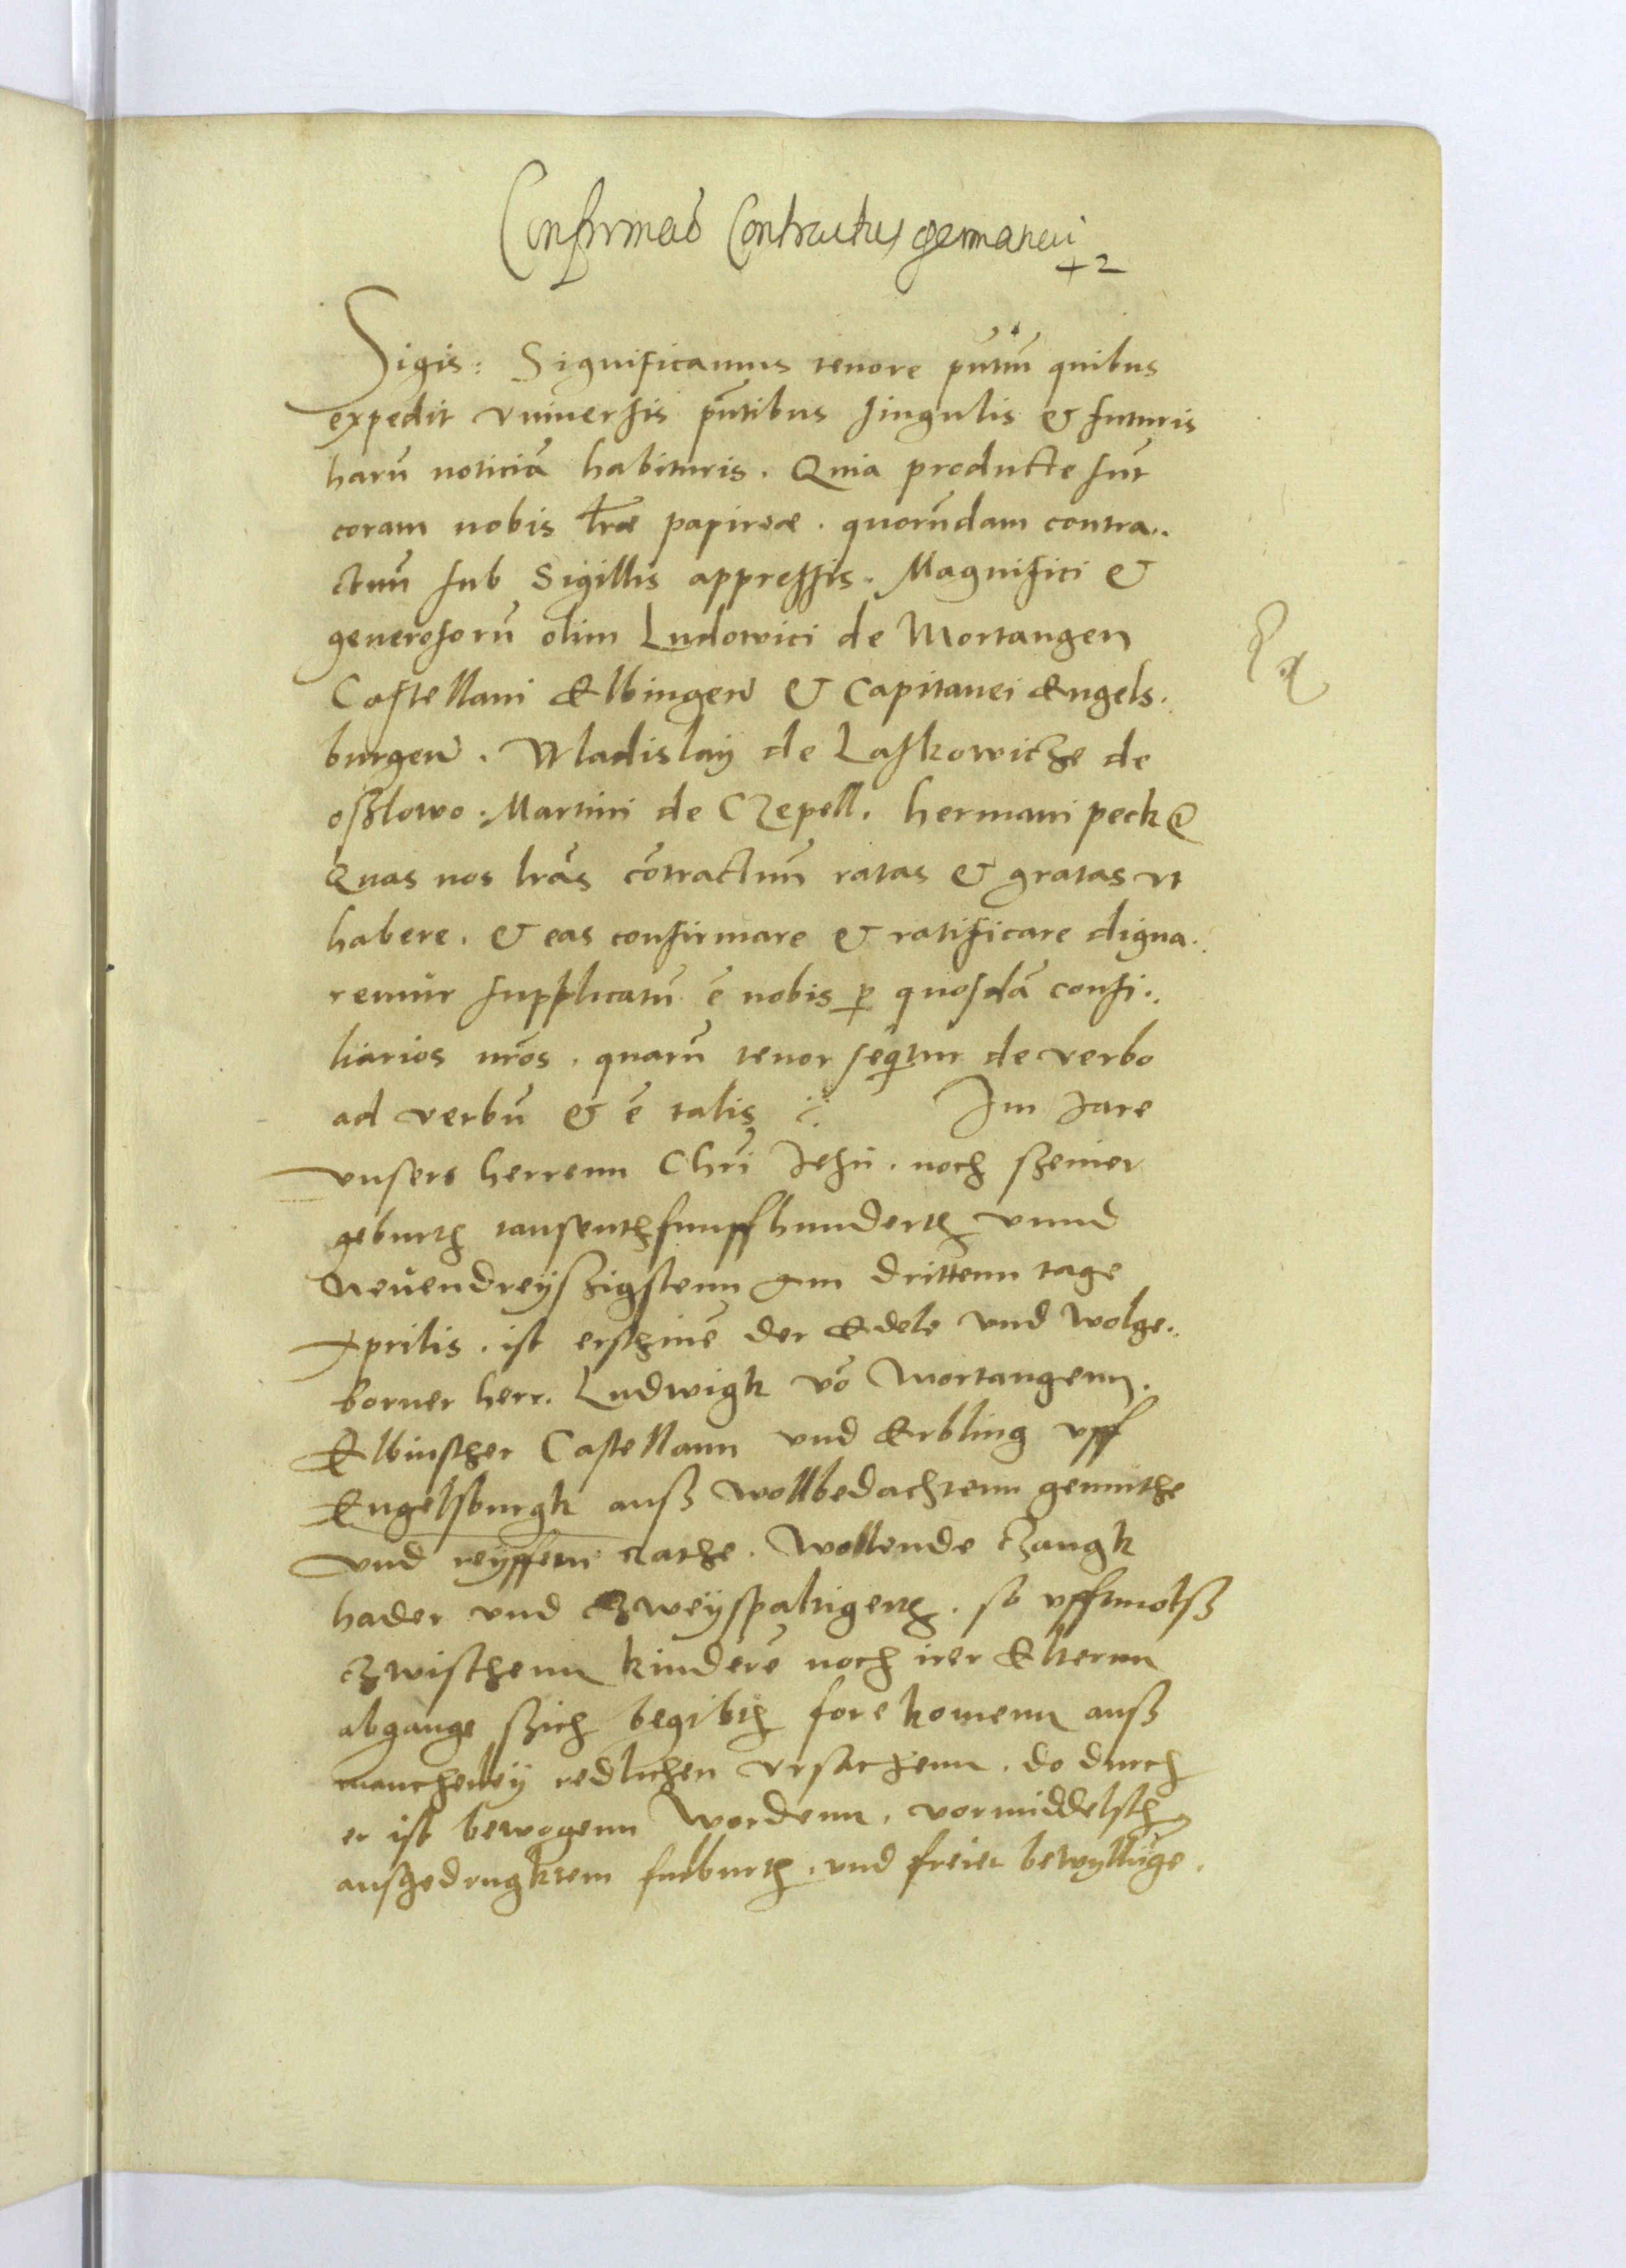 Confirmaō Contractus germanici
+ 2
Sigis: Significamus tenore pñtiũ quibus
expedit vniuersis pñtibus singulis & futuris
harũ noticiã habituris. Quia producte sũt
coram nobis lr̃æ papireæ. quorũdam contra..
ctuũ sub Sigillis appressis. Magnifici &
generosorũ olim Ludowici de Mortangen
Castellani Elbingeñ & Capitanei Engels.
burgeñ. Vladislaÿ de Laskowicze de
oßlowo. Martini de CZepell. hermani peck
Quas nos lrãs cõtractuũ ratas & gratas vt
habere. & eas confirmare & ratificare digna..
remur supplicatũ ẽ nobis ꝑ quosdã consi..
liarios nr̃os. quarũ tenor seq̃tur de verbo
ad verbũ & ẽ talis Im Jare
vnsers herrenn Chr̃i Jesu. noch szeiner
geburth tausenthfunffhunderth vnnd
Neuendreÿszigstenn am drittenn tage
Aprilis. ist erschinẽ der Edele vnd Wolge..
borner herr. Ludwigk võ Mortangenn.
Elbinscher Castellann vnd Erbling vff
Engelsburgk auß wollbedachtenn gemuthe
vnd reÿffem Rathe. Wollende Czangk
hader vnd Czweÿspaltigerth. so offtmolß
Czwischenn kinderẽ noch irer Elternn
abgange szich begibth fore komenn auß
mancherleÿ redlichen vrsachenn. do durch
er ist bewogenn Wordenn. vormiddelsth
außgedrugktem fulburth. vnd freier bewyllũge.